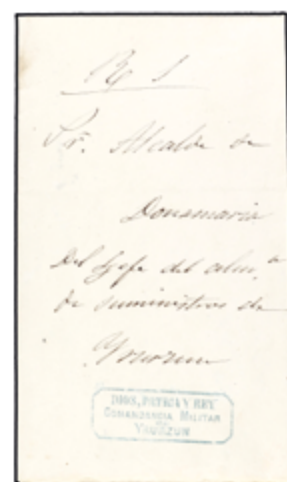 Sr. Alcalde de
Donamaria
Del Gefe del alm.ⁿ
de suministros de
Yrurzun
DIOS, PATRIA Y REY
COMANDANCIA MILITAR
DE
YRURZUN